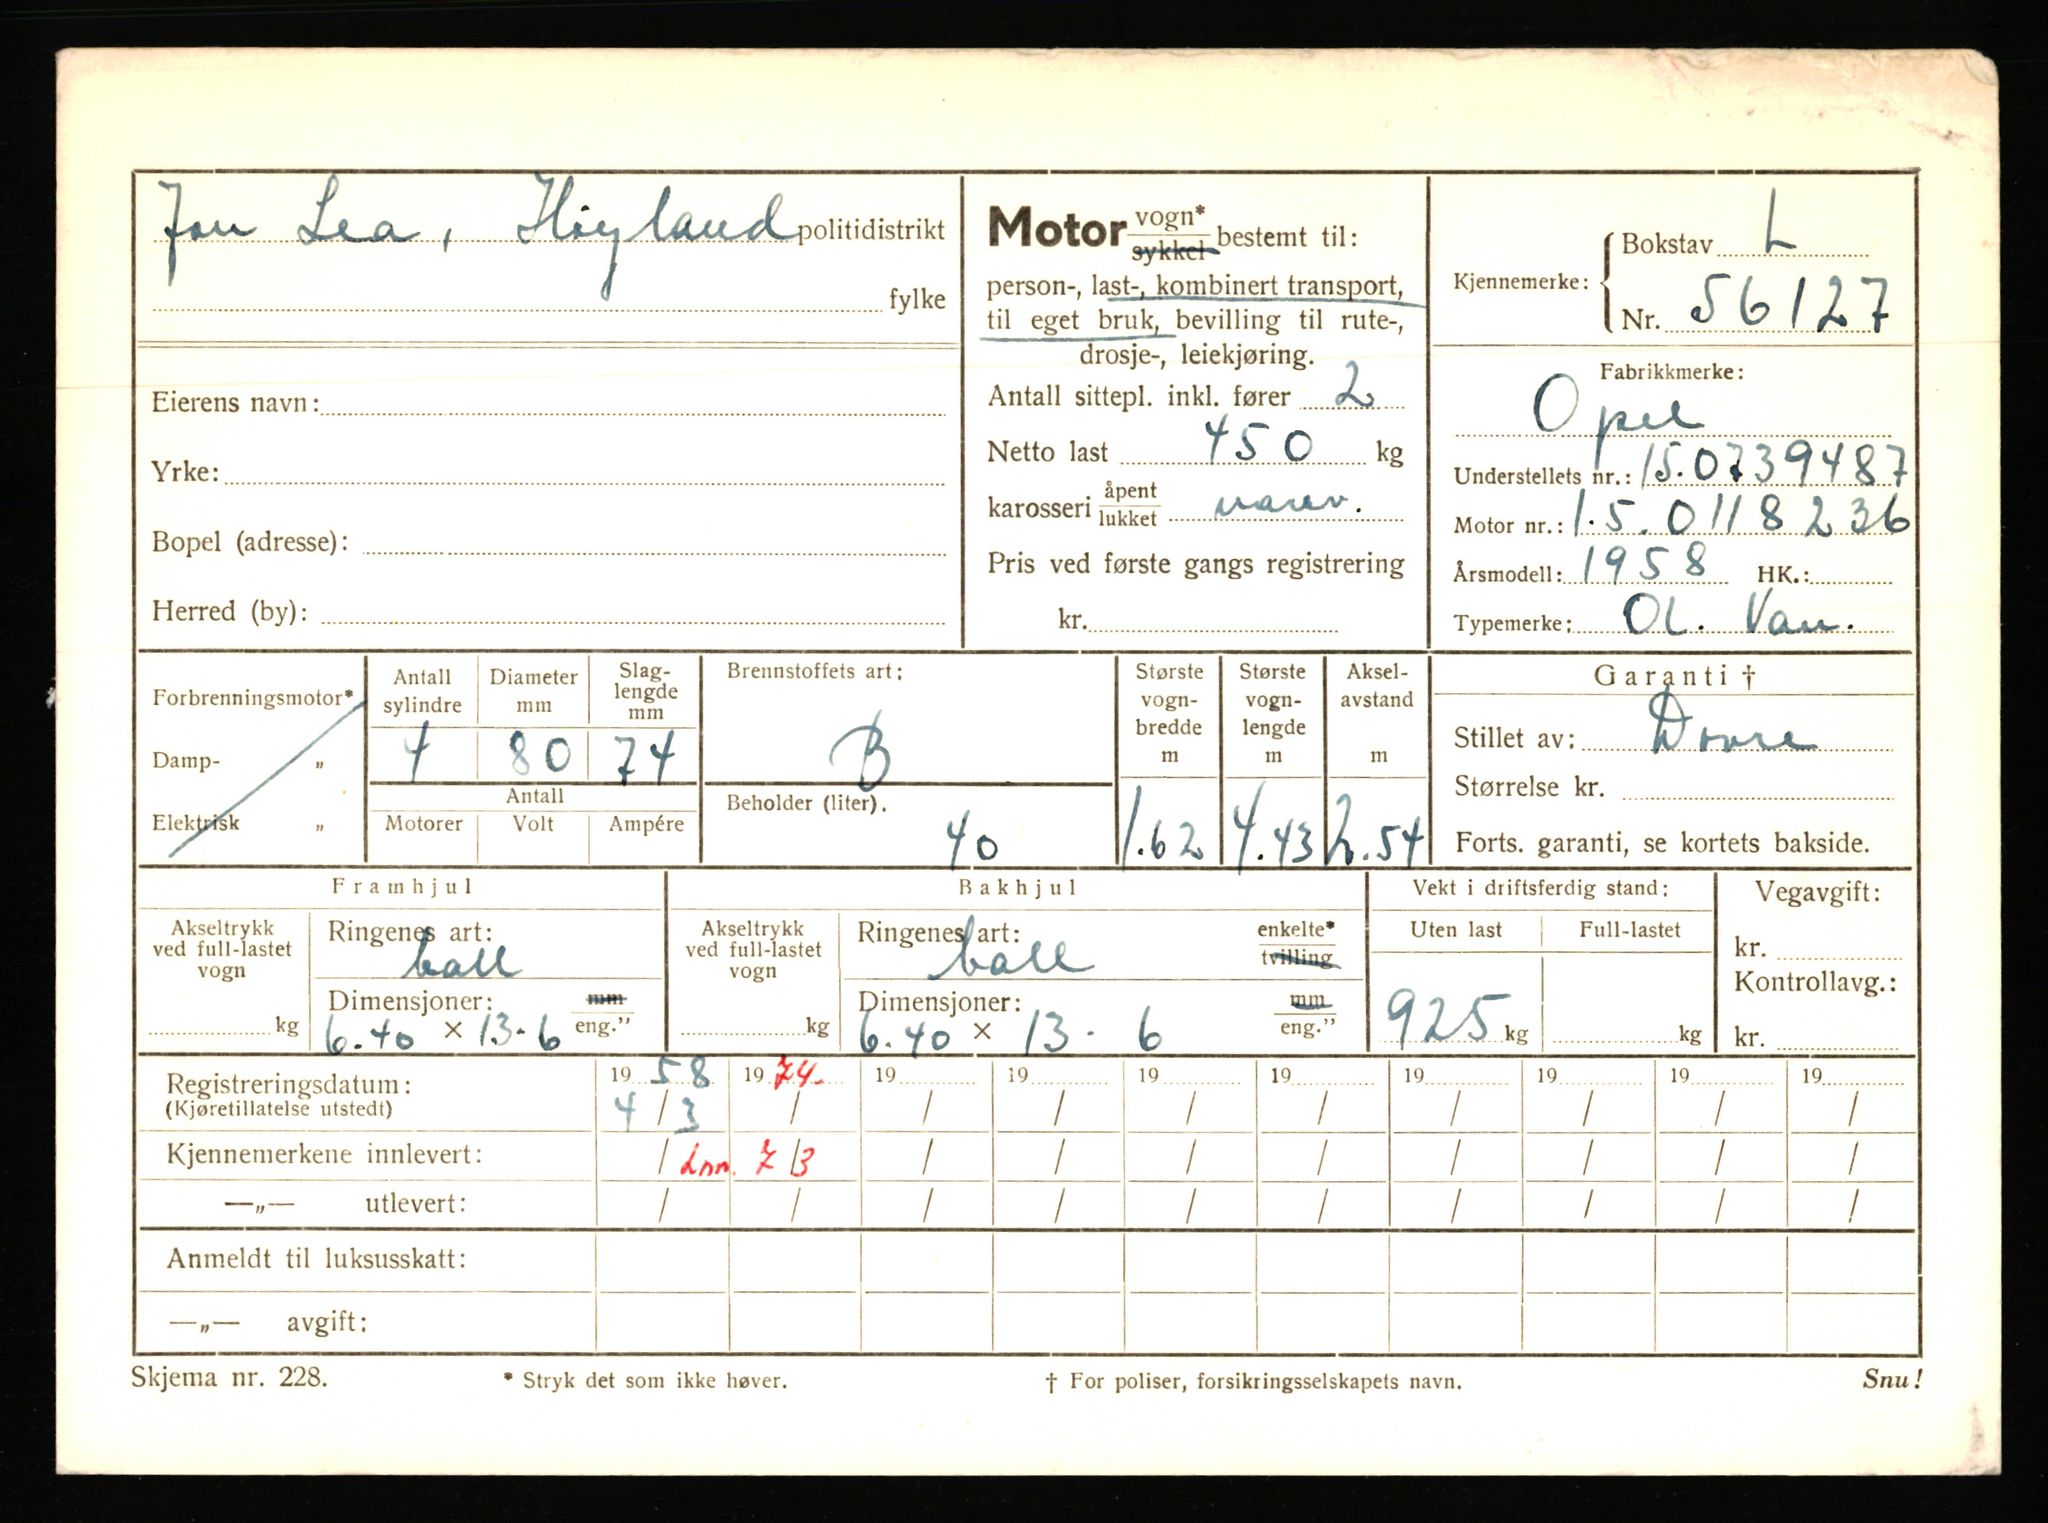 Jon Lea, Høyland politidistrikt
fylke
Eierens navn:
Yrke:
Bopel (adresse):
Herred (by):
Motor vogn* sykkel bestemt til:
person-, last-, kombinert transport,
til eget bruk, bevilling til rute-,
drosje-, leiekjøring.
Antall sittepl. inkl. fører 2
Netto last 450 kg
karosseri åpent lukket varev.
Pris ved første gangs registrering
kr.
Kjennemerke: Bokstav L
Nr. 56127
Fabrikkmerke:
Opel
Understellets nr.: 15.0739487
Motor nr.: 1.5.0118236
Årsmodell: 1958 HK.:
Typemerke: OL. Van.
Forbrenningsmotor*
Damp- „
Elektrisk „
Antall sylindre
Diameter mm
Slaglengde mm
4 80 74
Antall
Motorer Volt Ampére
Brennstoffets art:
B
Beholder (liter).
40
Største vognbredde m
1.62
Største vognlengde m
4.43
Akselavstand m
2.54
Garanti †
Stillet av: Dovre
Størrelse kr.
Forts. garanti, se kortets bakside.
Framhjul
Akseltrykk ved full-lastet vogn
kg
Ringenes art:
ball
Dimensjoner: mm
6.40 × 13-6 eng.”
Bakhjul
Akseltrykk ved full-lastet vogn
kg
Ringenes art: enkelte*
ball tvilling
Dimensjoner: mm
6.40 × 13 - 6 eng.”
Vekt i driftsferdig stand:
Uten last Full-lastet
925 kg kg
Vegavgift:
kr.
Kontrollavg.:
kr.
Registreringsdatum: 19 58 19 74. 19 19 19 19 19 19 19 19
(Kjøretillatelse utstedt) 4 / 3 / / / / / / / / /
Kjennemerkene innlevert: / Inn. 7/3 / / / / / / / /
—„— utlevert: / / / / / / / / / /
Anmeldt til luksusskatt:
—„— avgift:
Skjema nr. 228. * Stryk det som ikke høver. † For poliser, forsikringsselskapets navn. Snu!